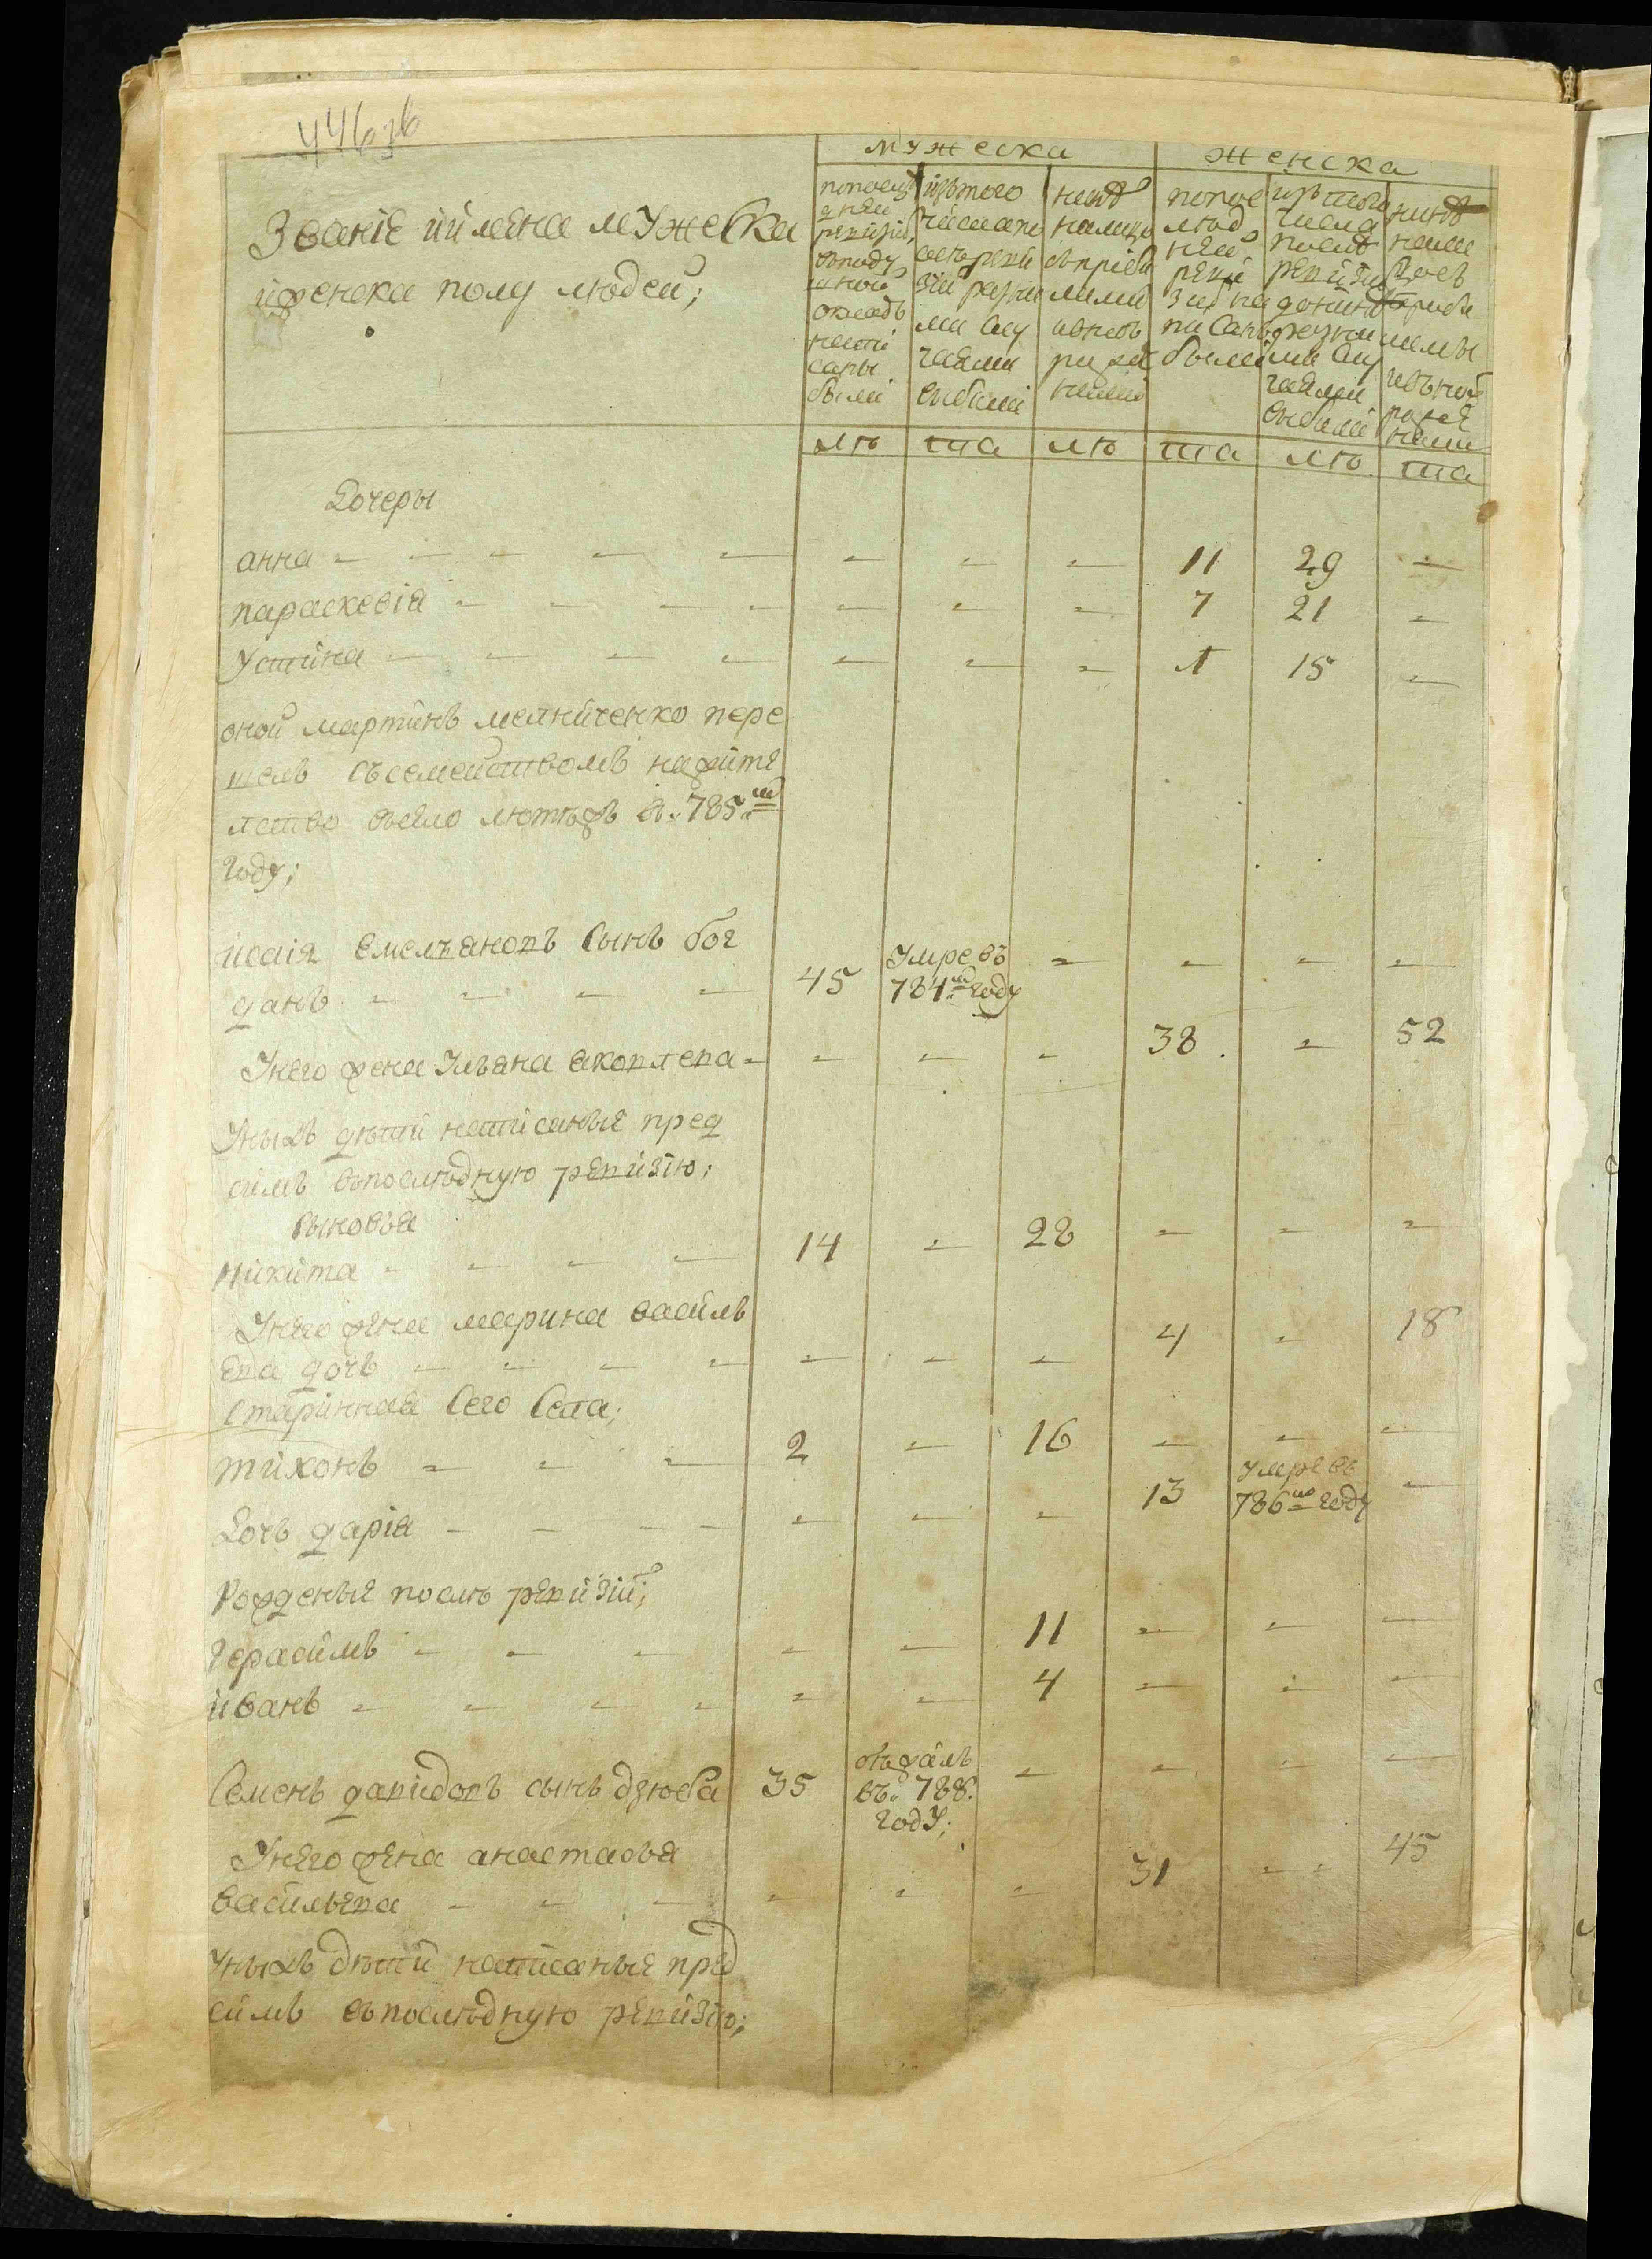 446зв
мужеска женска
Званіе иимена мужеска
ифенска полу людей;
попослѣ дней ревизіи вподу шной окладъ написаны были
изътого числапо слѣреви зіи разны ми слу чаями выбыли
нинѣ налицо съприбы лыми ивновь рожде ными
попос лѣд ней реви зіи на писаны были
изътого числа послѣ ревизіи донинѣ разны ми слу чаями выбыли
нинѣ нали цосъ прибы лыми ивъновъ рожде ными
лѣ та лѣ та лѣ та
Дочеры
анна - - - - - - - - 11 29 -
параскевія - - - - - - - 7 21 -
Устина - - - - - - - 1 15 -
оной мартинъ мелниченко пере
шелъ съсемействомъ нафите
лство всело лютѣфъ в. 785м
году;
исаія емелъяновъ сынъ бог
данъ - - - - 45 Умре въ 784м году - - - -
Унего фена Улъяна яковлева - - - - 38 - 52
Унихъ дѣти написаные пред
симъ впослѣднуюю ревизію;
сыновъя
никита - - - - 14 - 28 - - -
Унего фена марина василь
ева дочъ - - - - - - - 4 - 18
старинная сего села;
тихонъ - - - 2 - 16 - - -
Дочъ дарія - - - - - - - 13 умре въ 786м году -
Рофденые послѣ ревизіи;
герасимъ - - - - - 11 - - -
иванъ - - - - - - 4 - - -
Семенъ давидовъ сынъ дзюба 35 збѣфалъ въ. 788. году; - - - -
Унего фена анастасъя
василъева - - - - - - 31 - - 45
Унихъ дѣти написаные пред
симъ впослѣднуюю ревизію;